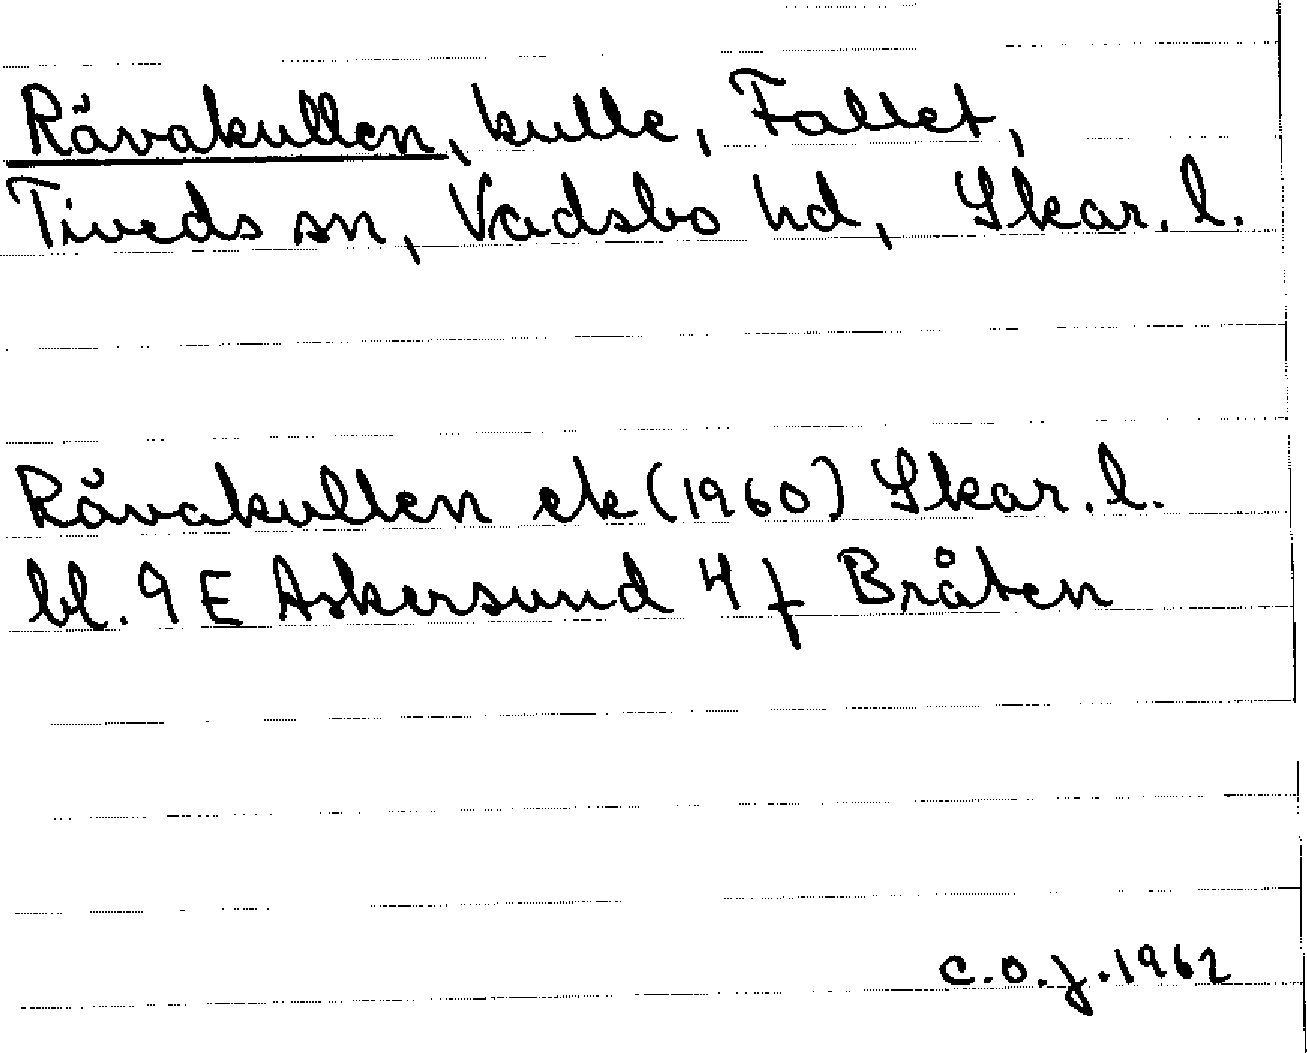 Rävakullen, kulle, Fallet,
Tiveds sn, Vadsbo hd, Skar. l.
Rävakullen ek (1960) Skar. l.
bl. 9 E Askersund 4 f Bråten
C.O.J. 1962